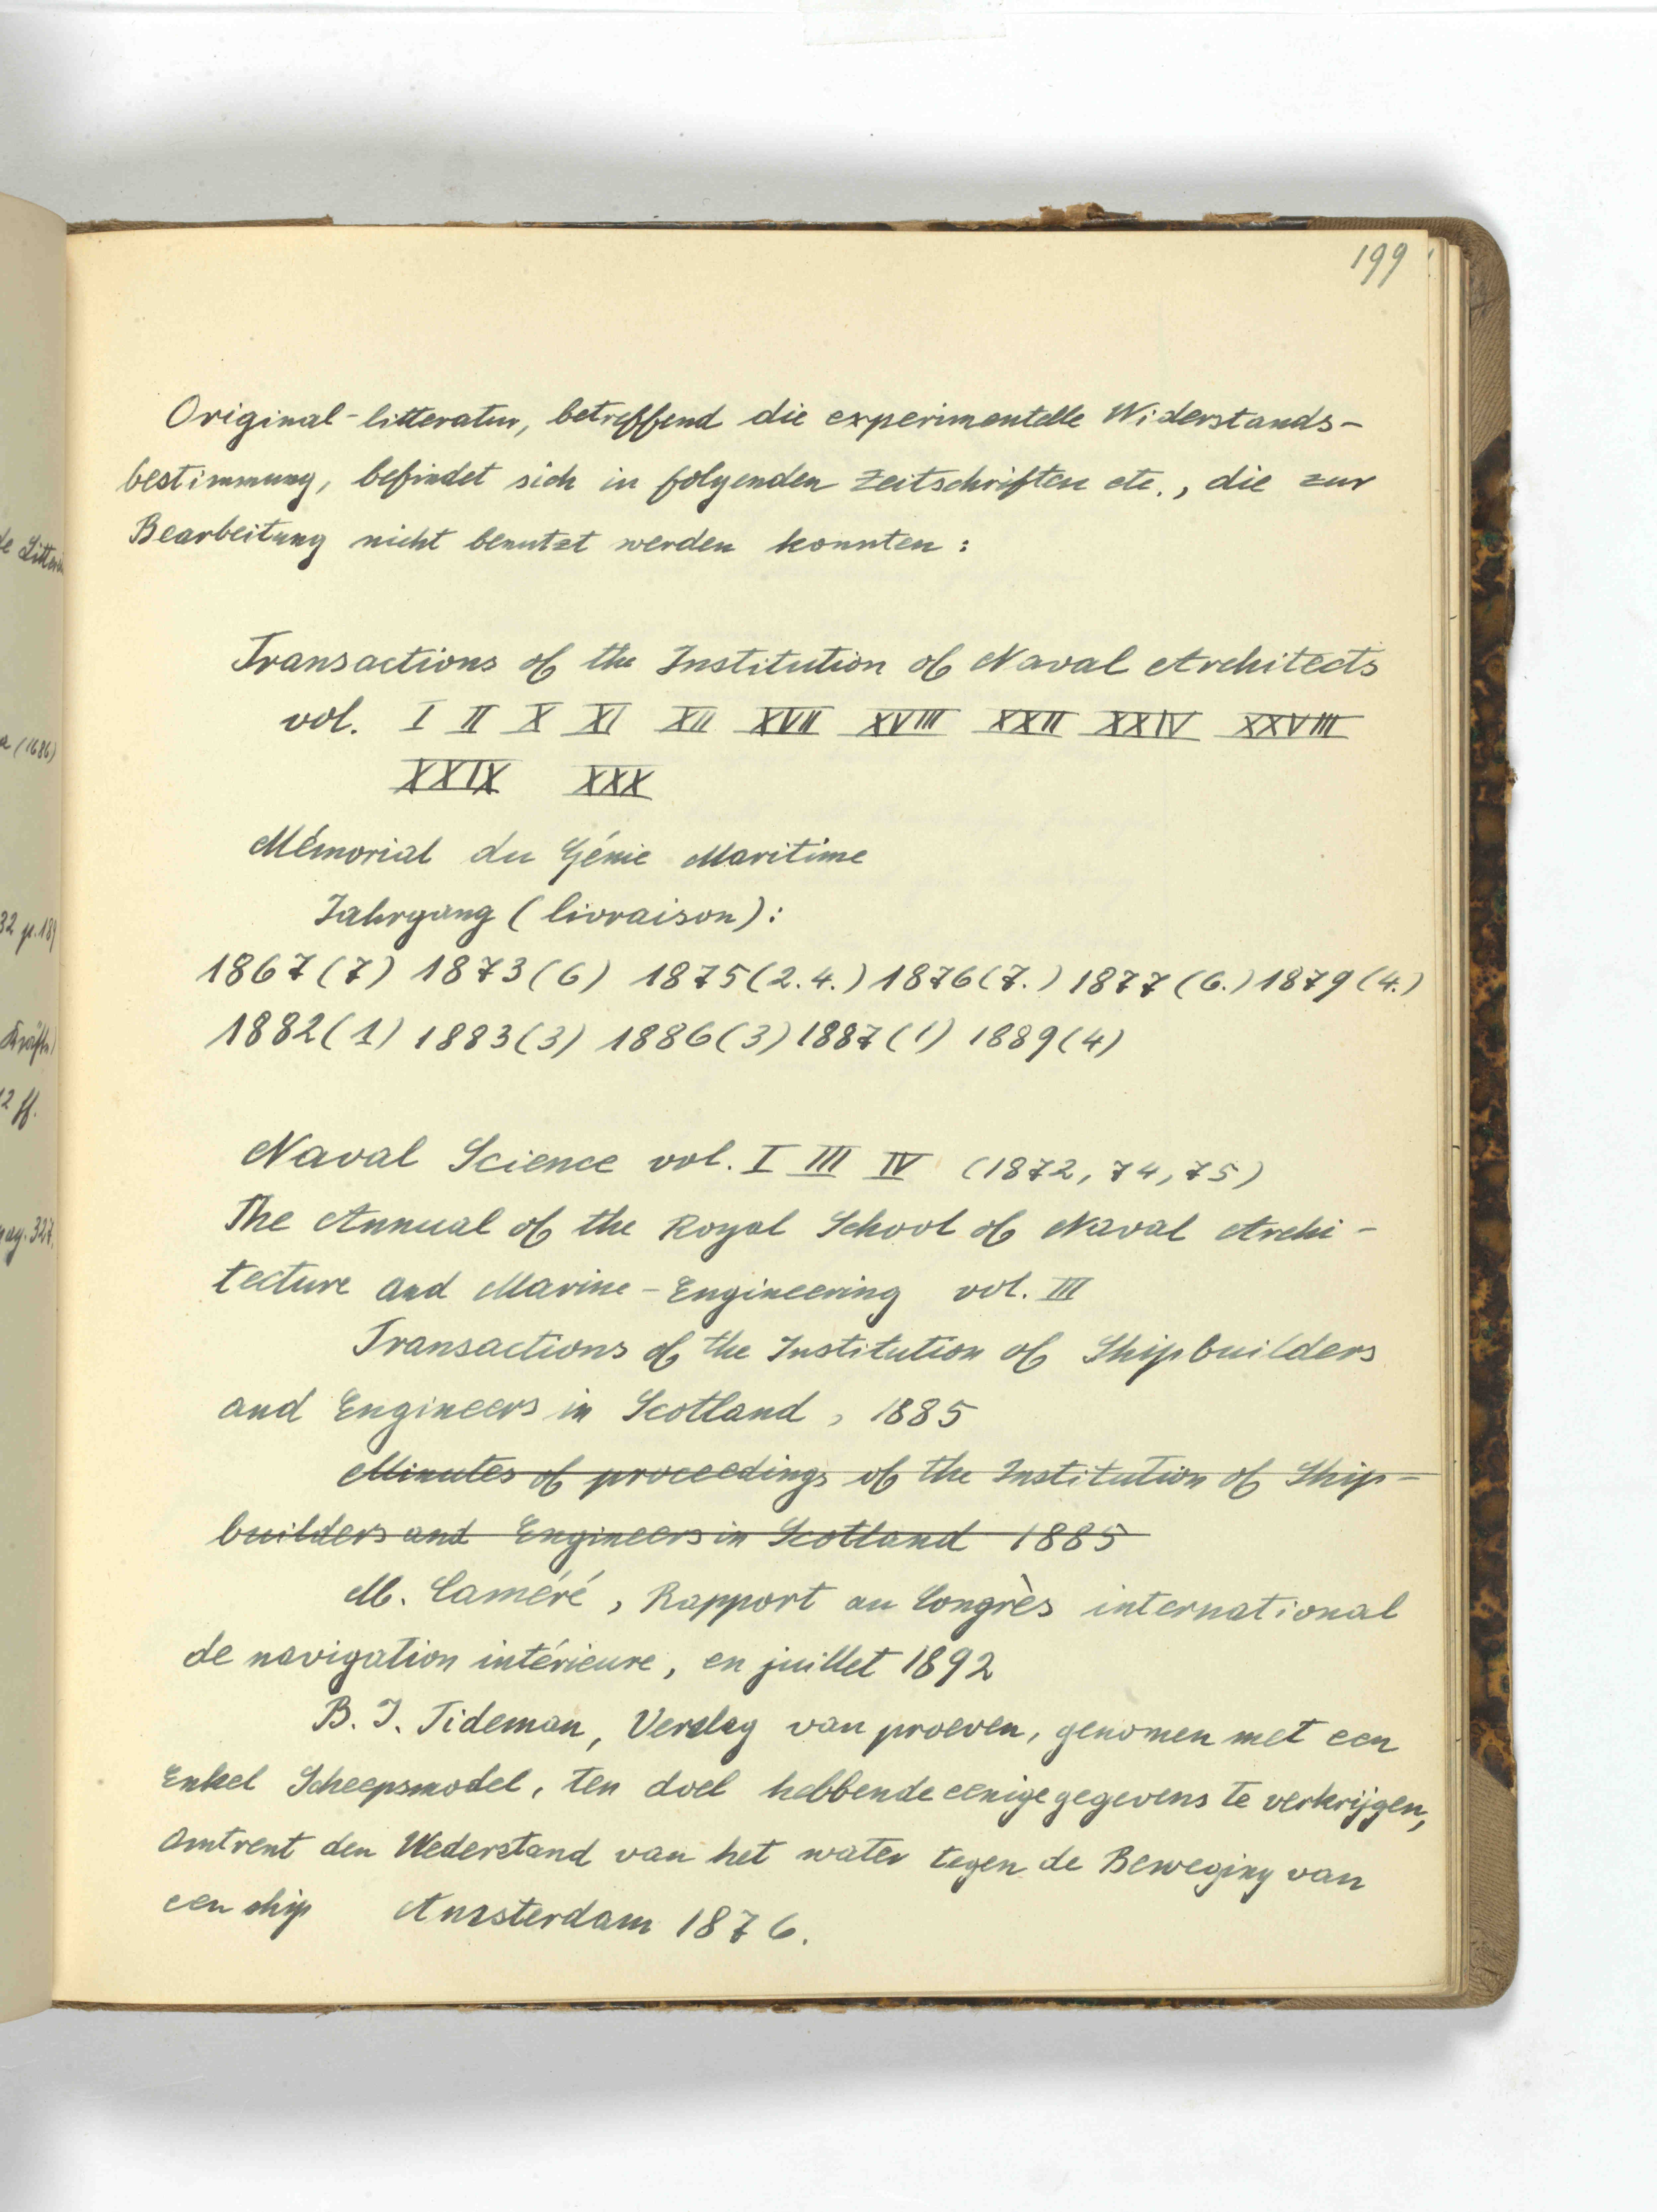 199
Original-litteratur, betreffend die experimentelle Widerstands-
bestimmung, befindet sich in folgenden Zeitschriften etc., die zur
Bearbeitung nicht benutzt werden konnten:
Transactions of the Institution of Naval Architects
vol. I II X XI XII XVII XVIII XXII XXIV XXVIII
XXIX XXX
Mémorial du Génie Maritime
Jahrgang (livraison):
1867(7) 1873(6) 1875(2.4.) 1876(7.) 1877(6.) 1879(4.)
1882(1) 1883(3) 1886(3) 1887(1) 1889(4)
Naval Science vol. I III IV (1872, 74, 75)
The Annual of the Royal School of Naval Archi-
tecture and Marine-Engineering vol. III
Transactions of the Institution of Shipbuilders
and Engineers in Scotland, 1885
Minutes of proceedings of the Institution of Ship-
builders and Engineers in Scotland 1885
M. Caméré, Rapport au Congrès international
de navigation intérieure, en juillet 1892
B. J. Tideman, Verslag van proeven, genomen met een
Enkel Scheepsmodel, ten doel hebbende eenige gegevens te verkrijgen,
Omtrent den Wederstand van het water tegen de Beweging van
een ship Amsterdam 1876.
(1686)
32 p. 189
2 ff.
pag. 327.